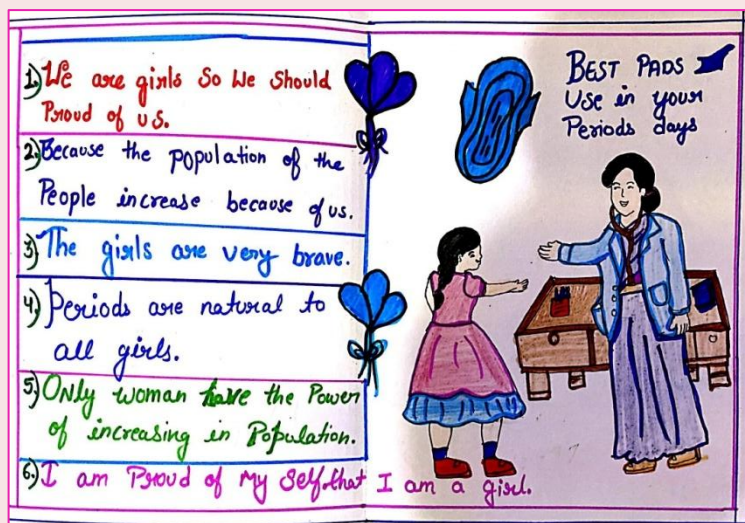 1) We are girls So We Should
Proud of us.
2) Because the population of the
People increase because of us.
3) The girls are very brave.
4) Periods are natural to
all girls.
5) Only woman have the Power
of increasing in Population.
6) I am Proud of My Self that I am a girl.
BEST PADS
Use in your
Periods days